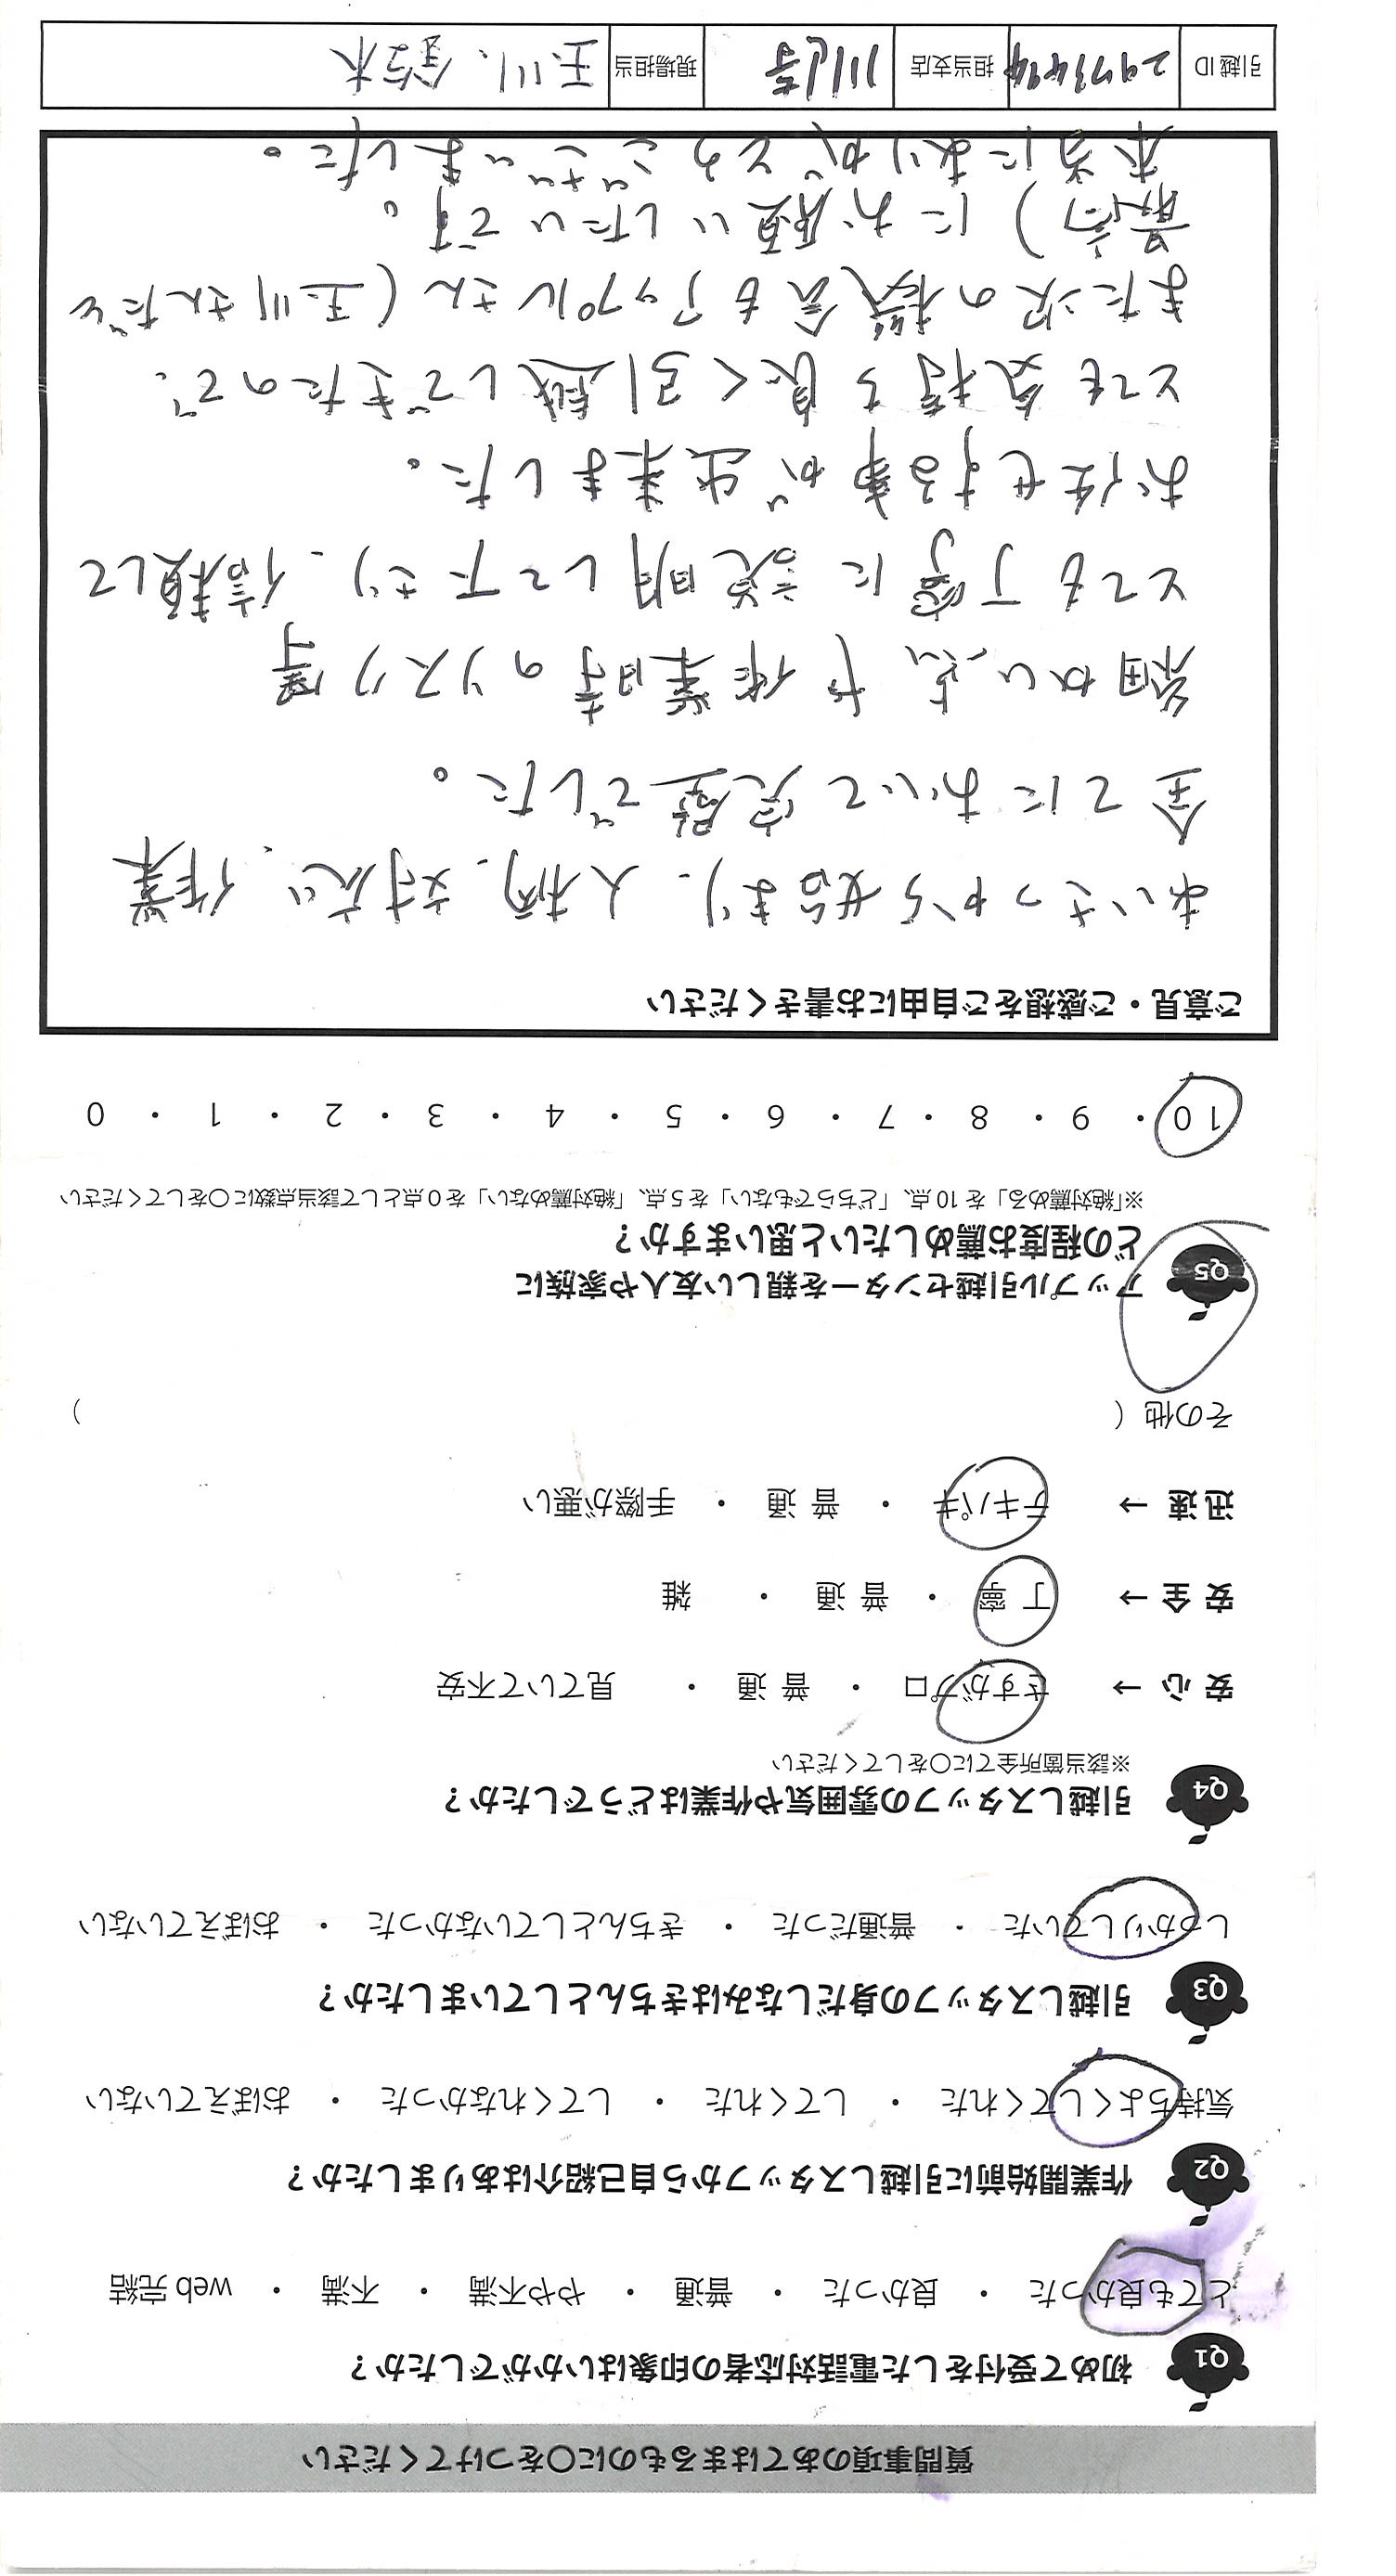 質問事項のあてはまるものに〇をつけてください
Q1 初めて受付をした電話対応者の印象はいかがでしたか？
とても良かった ・ 良かった ・ 普通 ・ やや不満 ・ 不満 ・ web 完結
Q2 作業開始前に引越しスタッフから自己紹介はありましたか？
気持ちよくしてくれた ・ してくれた ・ してくれなかった ・ おぼえていない
Q3 引越しスタッフの身だしなみはきちんとしていましたか？
しっかりしていた ・ 普通だった ・ きちんとしていなかった ・ おぼえていない
Q4 引越しスタッフの雰囲気や作業はどうでしたか？
※該当箇所全てに〇をしてください
安 心 → さすがプロ ・ 普 通 ・ 見ていて不安
安 全 → 丁 寧 ・ 普 通 ・ 雑
迅 速 → テキパキ ・ 普 通 ・ 手際が悪い
その他 ( )
Q5 アップル引越センターを親しい友人や家族に
どの程度お薦めしたいと思いますか？
※「絶対薦める」を 10 点、「どちらでもない」を 5 点、「絶対薦めない」を 0 点として該当点数に〇をしてください
10 ・ 9 ・ 8 ・ 7 ・ 6 ・ 5 ・ 4 ・ 3 ・ 2 ・ 1 ・ 0
ご意見・ご感想をご自由にお書きください
あいさつから始まり、人柄、対応、作業
全てにおいて完璧でした。
細かい点や作業時のリスク等
とても丁寧に説明して下さり、信頼して
お任せする事が出来ました。
とても気持ち良く引越しできたので、
また次の機会もアップルさん(玉川さんだと
最高)にお願いしたいです。
本当にありがとうございました。
引越 ID 2973494 担当支店 川崎 現場担当 玉川、鈴木